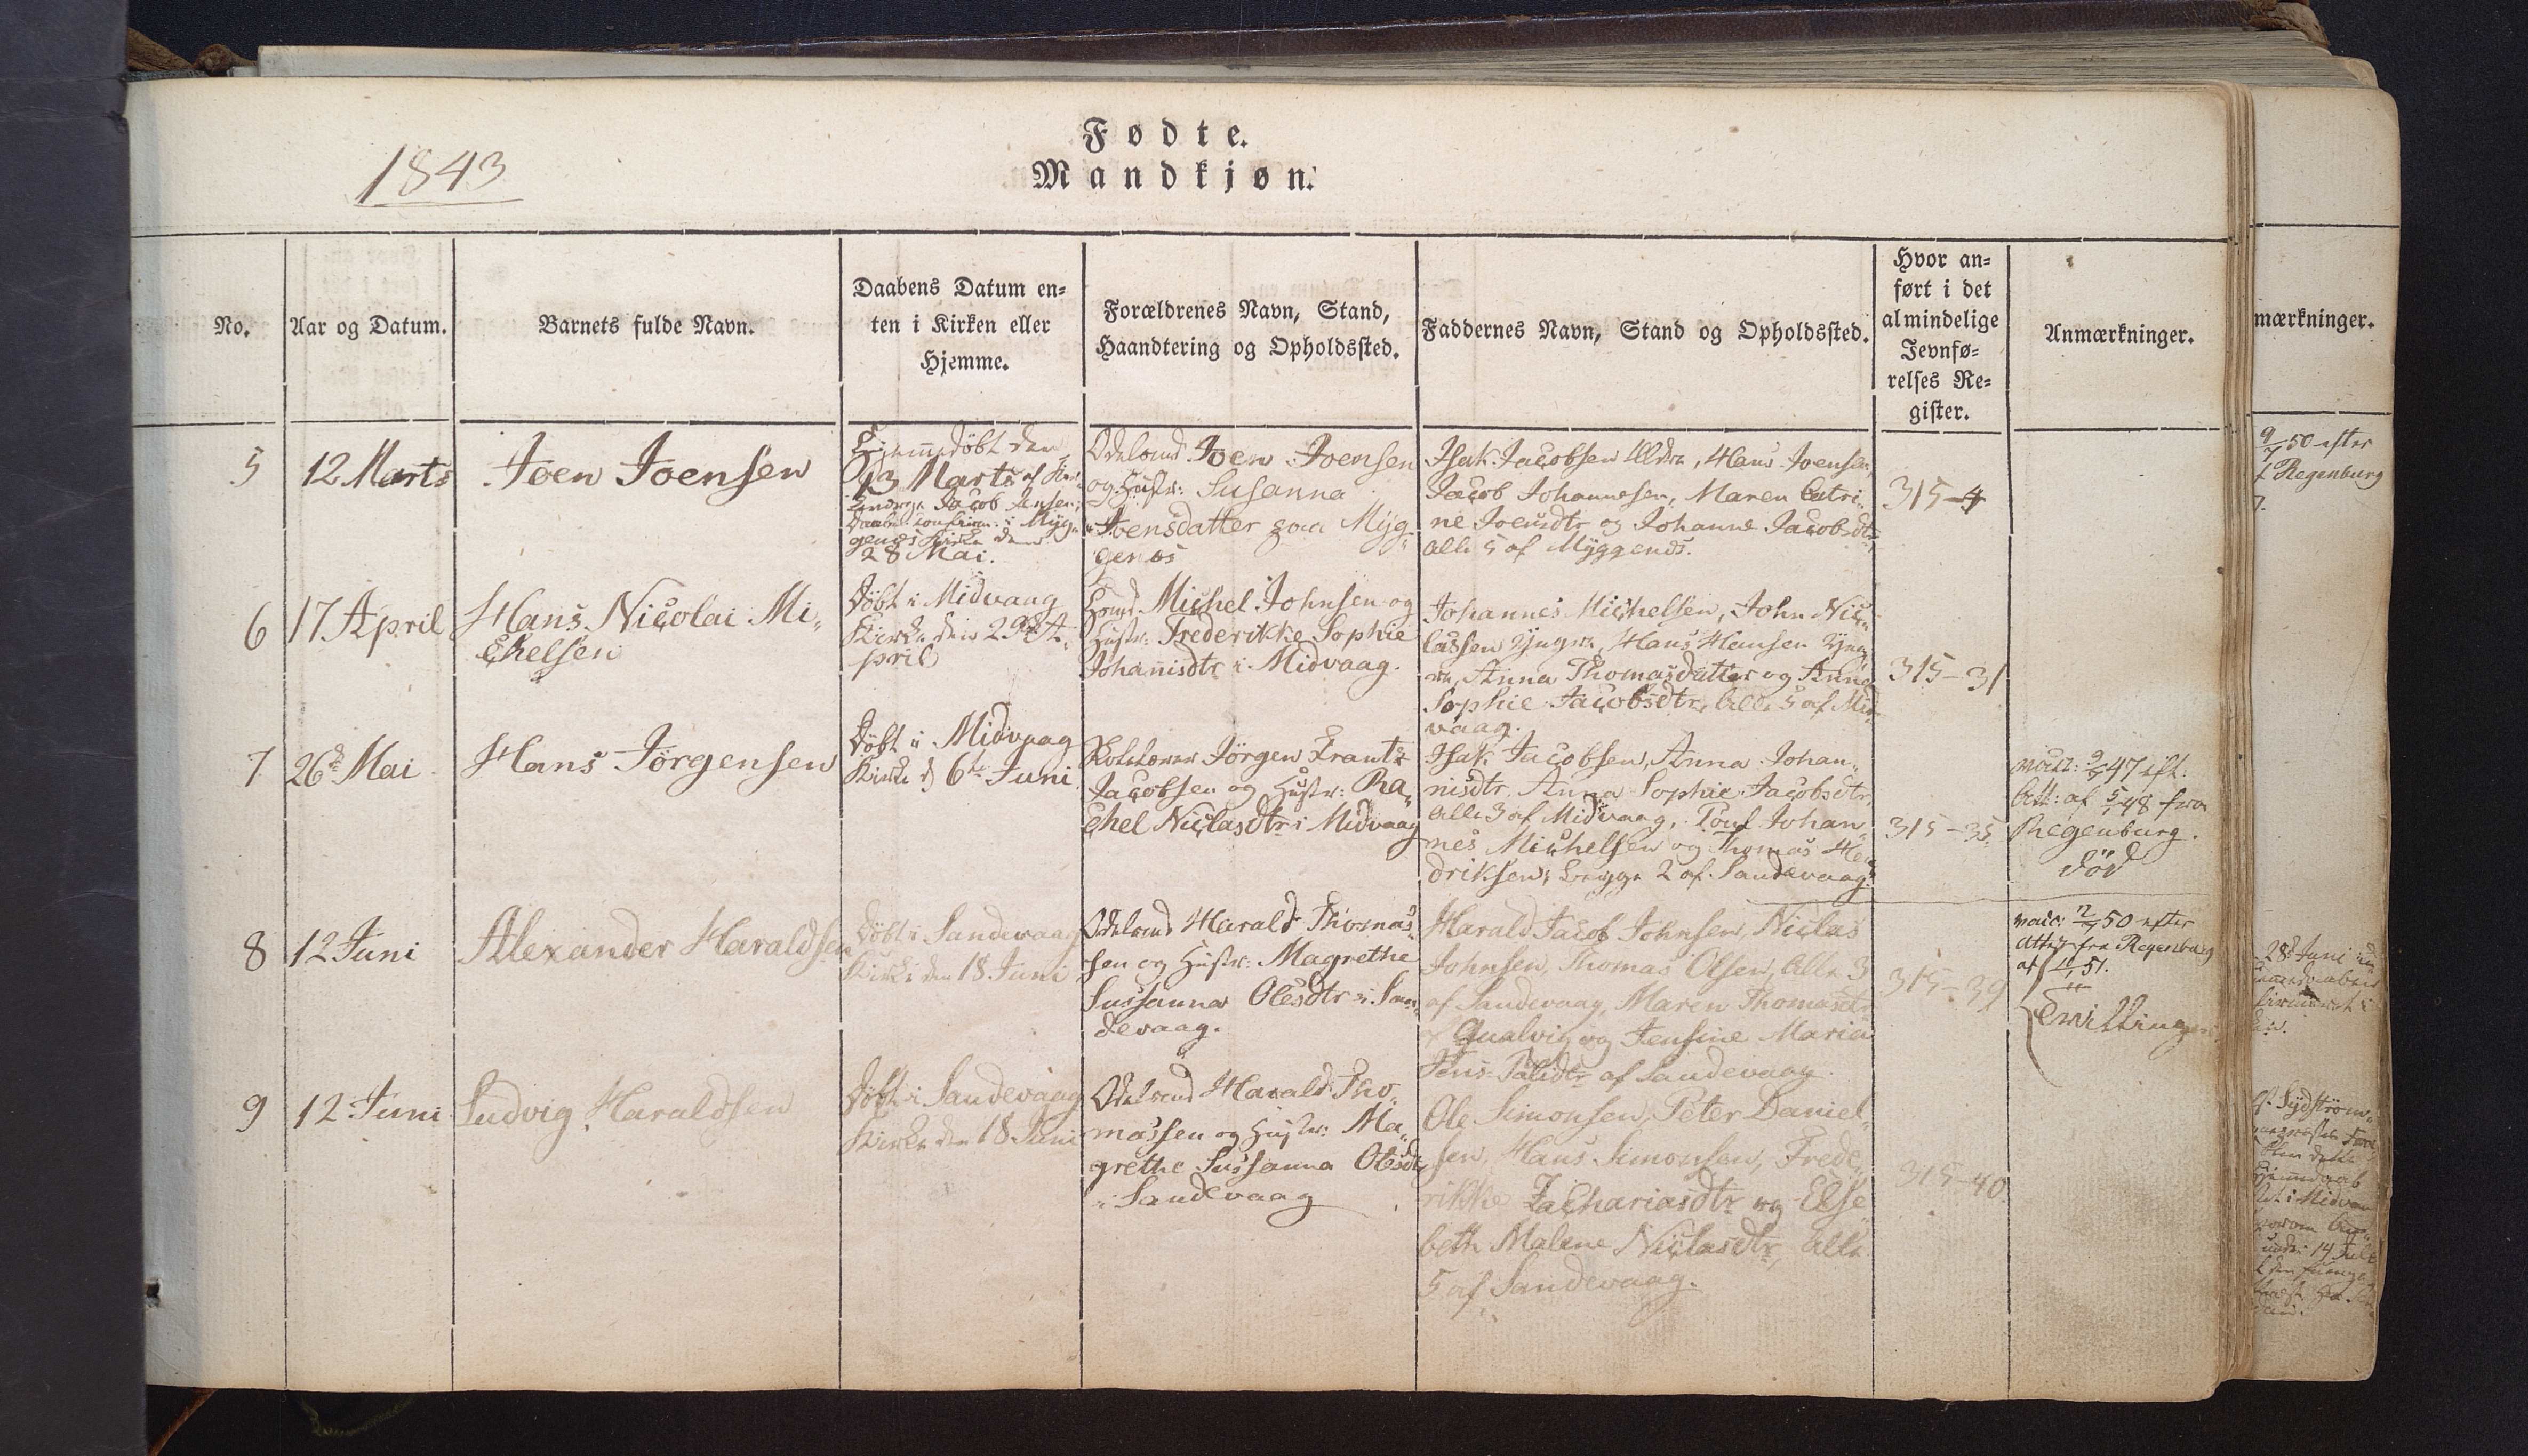 Fødte.
Mandkjøn.
1843
No.
Aar og Datum.
Barnets fulde Navn.
Daabens Datum en-
ten i Kirken eller
Hjemme.
Forældrenes Navn, Stand,
Haandtering og Opholdssted.
Faddernes Navn, Stand og Opholdssted.
Hvor an-
ført i det
almindelige
Jevnfø-
relses Re-
gister.
Anmærkninger.
mærkninger.
5
12 Marts
Joen Joensen
Hjemmedöbt den
13 Marts af
Jacob Jensen;
i Myg-
genæs Kirke den
28 Mai.
Odelsmd Joen Joensen
og Hustr: Susanna
Joensdatter paa Myg-
genæs
Isak Jacobsen Eldre, Hans Joensen,
Jacob Johannesen, Maren Catri-
ne Joensdtr og Johanne Jacobsdtr
alle 5 af Myggenæs.
315-4
6
17 April
Hans Nicolai Mi-
chelsen
Döbt i Midvaag
Kirke den 29de A-
pril
Michel Johnsen og
Hustr: Frederikke Sophie
Johannisdtr i Midvaag.
Johannes Michelsen, John Nic-
lassen Yngre, Hans Hansen Yng-
re, Anna Thomasdatter og Anna
Sophie Jacobsdtr, alle 5 af Mid-
vaag.
315-31
7
26de Mai
Hans Jörgensen
Döbt i Midvaag
Kirke d 6te Juni
Jörgen Frantz
Jacobsen og Hustr: Ra-
chel Niclasdtr i Midvaag
Isak Jacobsen, Anna Johan-
nisdtr, Anna Sophie Jacobsdtr,
alle 3 af Midvaag, Poul Johan-
nes Michelsen og Thomas Hen-
driksen, begge 2 af Sandevaag.
315-35
vacc: 9/7 47 eft:
Att: af 5/ 48 fra
Regenburg.
död
8
12 Juni
Alexander Haraldsen
Döbt i Sandevaag
Kirke den 18 Juni
Odelsmd Harald Thomas-
sen og Hustr: Magrethe
Sussanna Olesdtr i San-
devaag.
Harald Jacob Johnsen, Niclas
Johnsen, Thomas Olsen, alle 3
af Sandevaag, Maren Thomasdtr
Qualvig og Jensine Maria
af Sandevaag.
315-39
vacc: 50 efter
Att: fra Regenburg
af 51.
Tvillinger
9
12 Juni
Ludvig Haraldsen
Döbt i Sandevaag
Kirke den 18 Juni
Odelsmd Harald Tho-
massen og Hustr: Ma-
grethe Sussanna Olesdtr
i Sandevaag
Ole Simonsen, Peter Daniel-
sen, Hans Simonsen, Frede-
rikke Zachariasdtr og Else-
beth Malene Niclasdtr, alle
5 af Sandevaag.
315-40
9/7 50 efter
f Regenburg
28d Juni
14 Juli